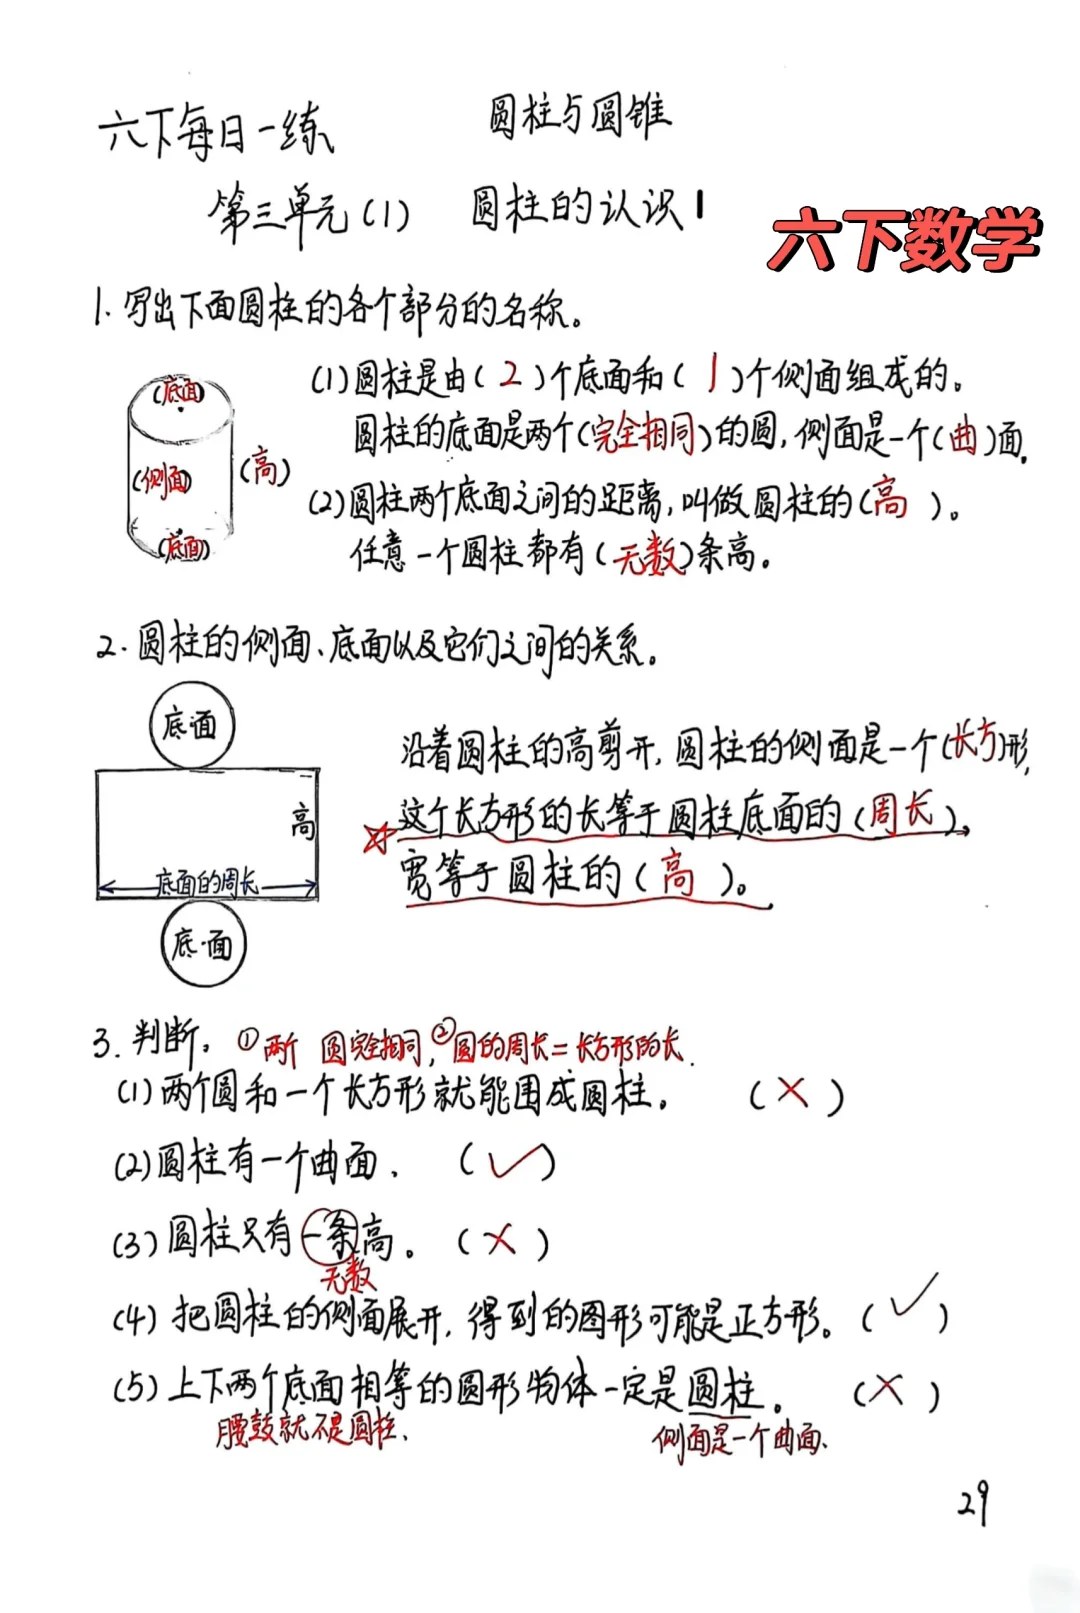 六下每日一练
圆柱与圆锥
第三单元(1) 圆柱的认识1
六下数学
1.写出下面圆柱的各个部分的名称。
(底面)
(侧面)
(高)
(底面)
(1)圆柱是由(2)个底面和(1)个侧面组成的。
圆柱的底面是两个(完全相同)的圆,侧面是一个(曲)面.
(2)圆柱两个底面之间的距离,叫做圆柱的(高)。
任意一个圆柱都有(无数)条高。
2.圆柱的侧面、底面以及它们之间的关系。
底面
高
底面的周长
底面
沿着圆柱的高剪开,圆柱的侧面是一个(长方)形,
这个长方形的长等于圆柱底面的(周长),
宽等于圆柱的(高)。
3.判断。①两个 圆完全相同,②圆的周长=长方形的长.
(1)两个圆和一个长方形就能围成圆柱。 (×)
(2)圆柱有一个曲面. (✓)
(3)圆柱只有一条高。(×)
无数
(4)把圆柱的侧面展开,得到的图形可能是正方形。(✓)
(5)上下两个底面相等的圆形物体一定是圆柱。 (×)
腰鼓就不是圆柱、 侧面是一个曲面、
29